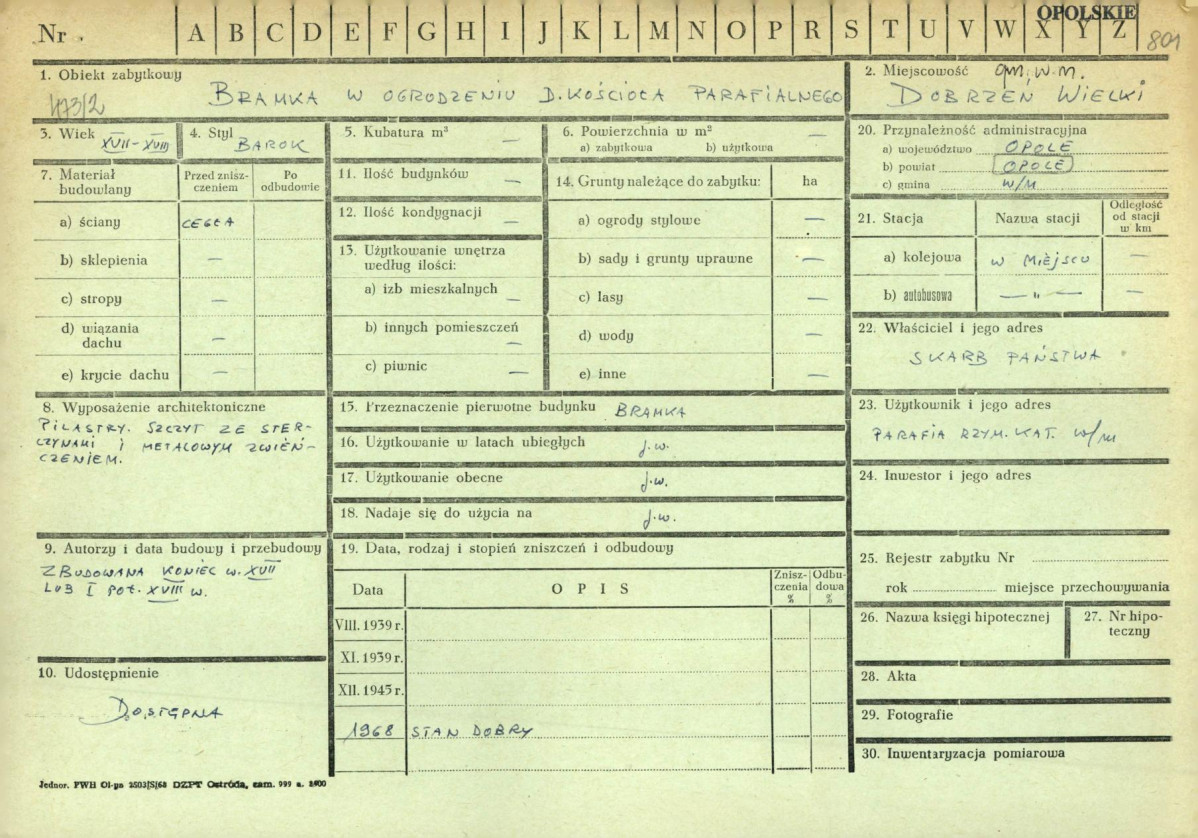 OPOLSKIE
Nr . A B C D E F G H I J K L M N O P R S T U V W X Y Z 801
1. Obiekt zabytkowy
473/2
BRAMKA W OGRODZENIU D. KOŚCIOŁA PARAFIALNEGO
2. Miejscowość gm. w.m.
DOBRZEŃ WIELKI
3. Wiek XVII-XVIII
4. Styl BAROK
5. Kubatura m³ —
6. Powierzchnia w m² —
a) zabytkowa b) użytkowa
20. Przynależność administracyjna
a) województwo OPOLE
b) powiat OPOLE
c) gmina w/m
7. Materiał budowlany
Przed zniszczeniem
Po odbudowie
a) ściany CEGŁA
b) sklepienia —
c) stropy —
d) wiązania dachu —
e) krycie dachu —
11. Ilość budynków —
12. Ilość kondygnacji —
13. Użytkowanie wnętrza
według ilości:
a) izb mieszkalnych —
b) innych pomieszczeń —
c) piwnic —
14. Grunty należące do zabytku: ha
a) ogrody stylowe —
b) sady i grunty uprawne —
c) lasy —
d) wody —
e) inne —
21. Stacja Nazwa stacji Odległość od stacji w km
a) kolejowa W MIEJSCU —
b) autobusowa — " — —
22. Właściciel i jego adres
SKARB PAŃSTWA
8. Wyposażenie architektoniczne
PILASTRY. SZCZYT ZE STER-
CZYNAMI I METALOWYM ZWIEŃ-
CZENIEM.
15. Przeznaczenie pierwotne budynku BRAMKA
16. Użytkowanie w latach ubiegłych j.w.
17. Użytkowanie obecne j.w.
18. Nadaje się do użycia na j.w.
23. Użytkownik i jego adres
PARAFIA RZYM. KAT. w/m
24. Inwestor i jego adres
9. Autorzy i data budowy i przebudowy
ZBUDOWANA KONIEC W. XVII
LUB I POŁ. XVIII W.
19. Data, rodzaj i stopień zniszczeń i odbudowy
Data OPIS Zniszczenia % Odbudowa %
VIII. 1939 r.
XI. 1939 r.
XII. 1945 r.
1968 STAN DOBRY
25. Rejestr zabytku Nr
rok miejsce przechowywania
26. Nazwa księgi hipotecznej
27. Nr hipoteczny
10. Udostępnienie
DOSTĘPNA
28. Akta
29. Fotografie
30. Inwentaryzacja pomiarowa
Jednor. PWH Ol-pa 2503/S/68 DZPT Ostróda, zam. 999 n. 2400